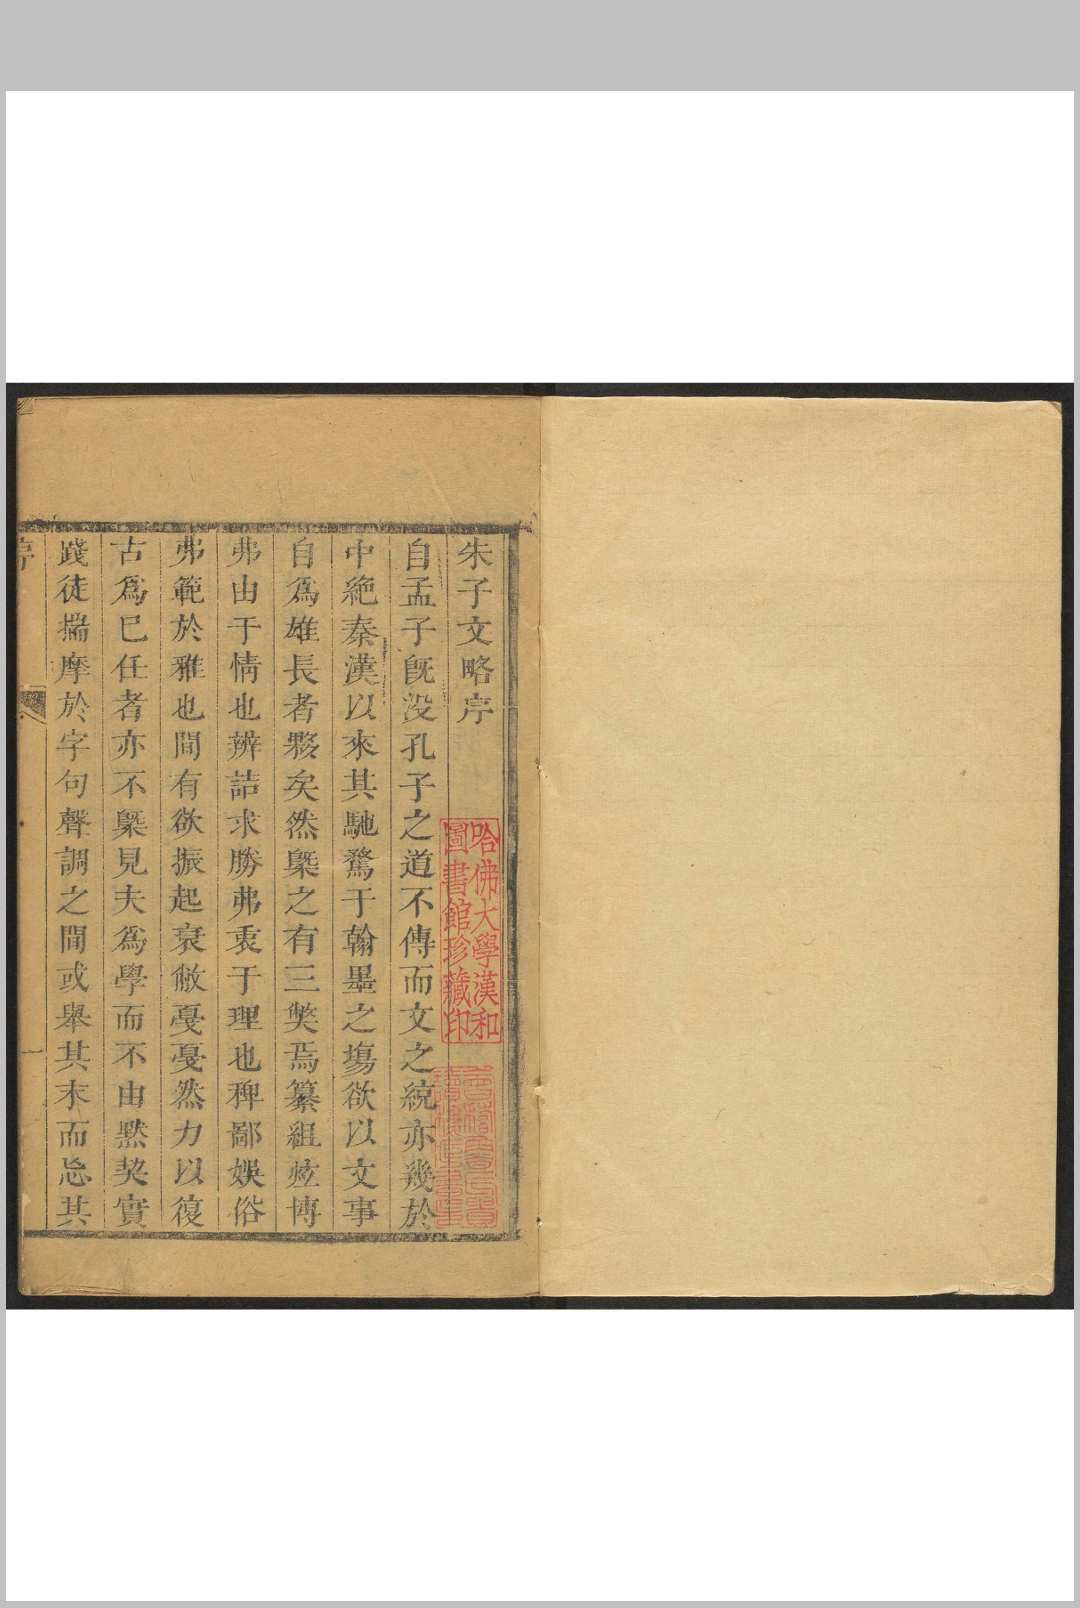 朱子文略序
自孟子旣没孔子之道不傳而文之統亦幾於
中絶秦漢以來其馳騖于翰墨之塲欲以文事
自爲雄長者夥矣然槩之有三獘焉纂組炫博
弗由于情也辨詰求勝弗衷于理也稗鄙娛俗
弗範於雅也間有欲振起衰敝戞戞然力以復
古爲已任者亦不槩見夫爲學而不由黙契實
踐徒揣摩於字句聲調之間或舉其末而忘其
序
一
哈佛大學漢和
圖書館珍藏印